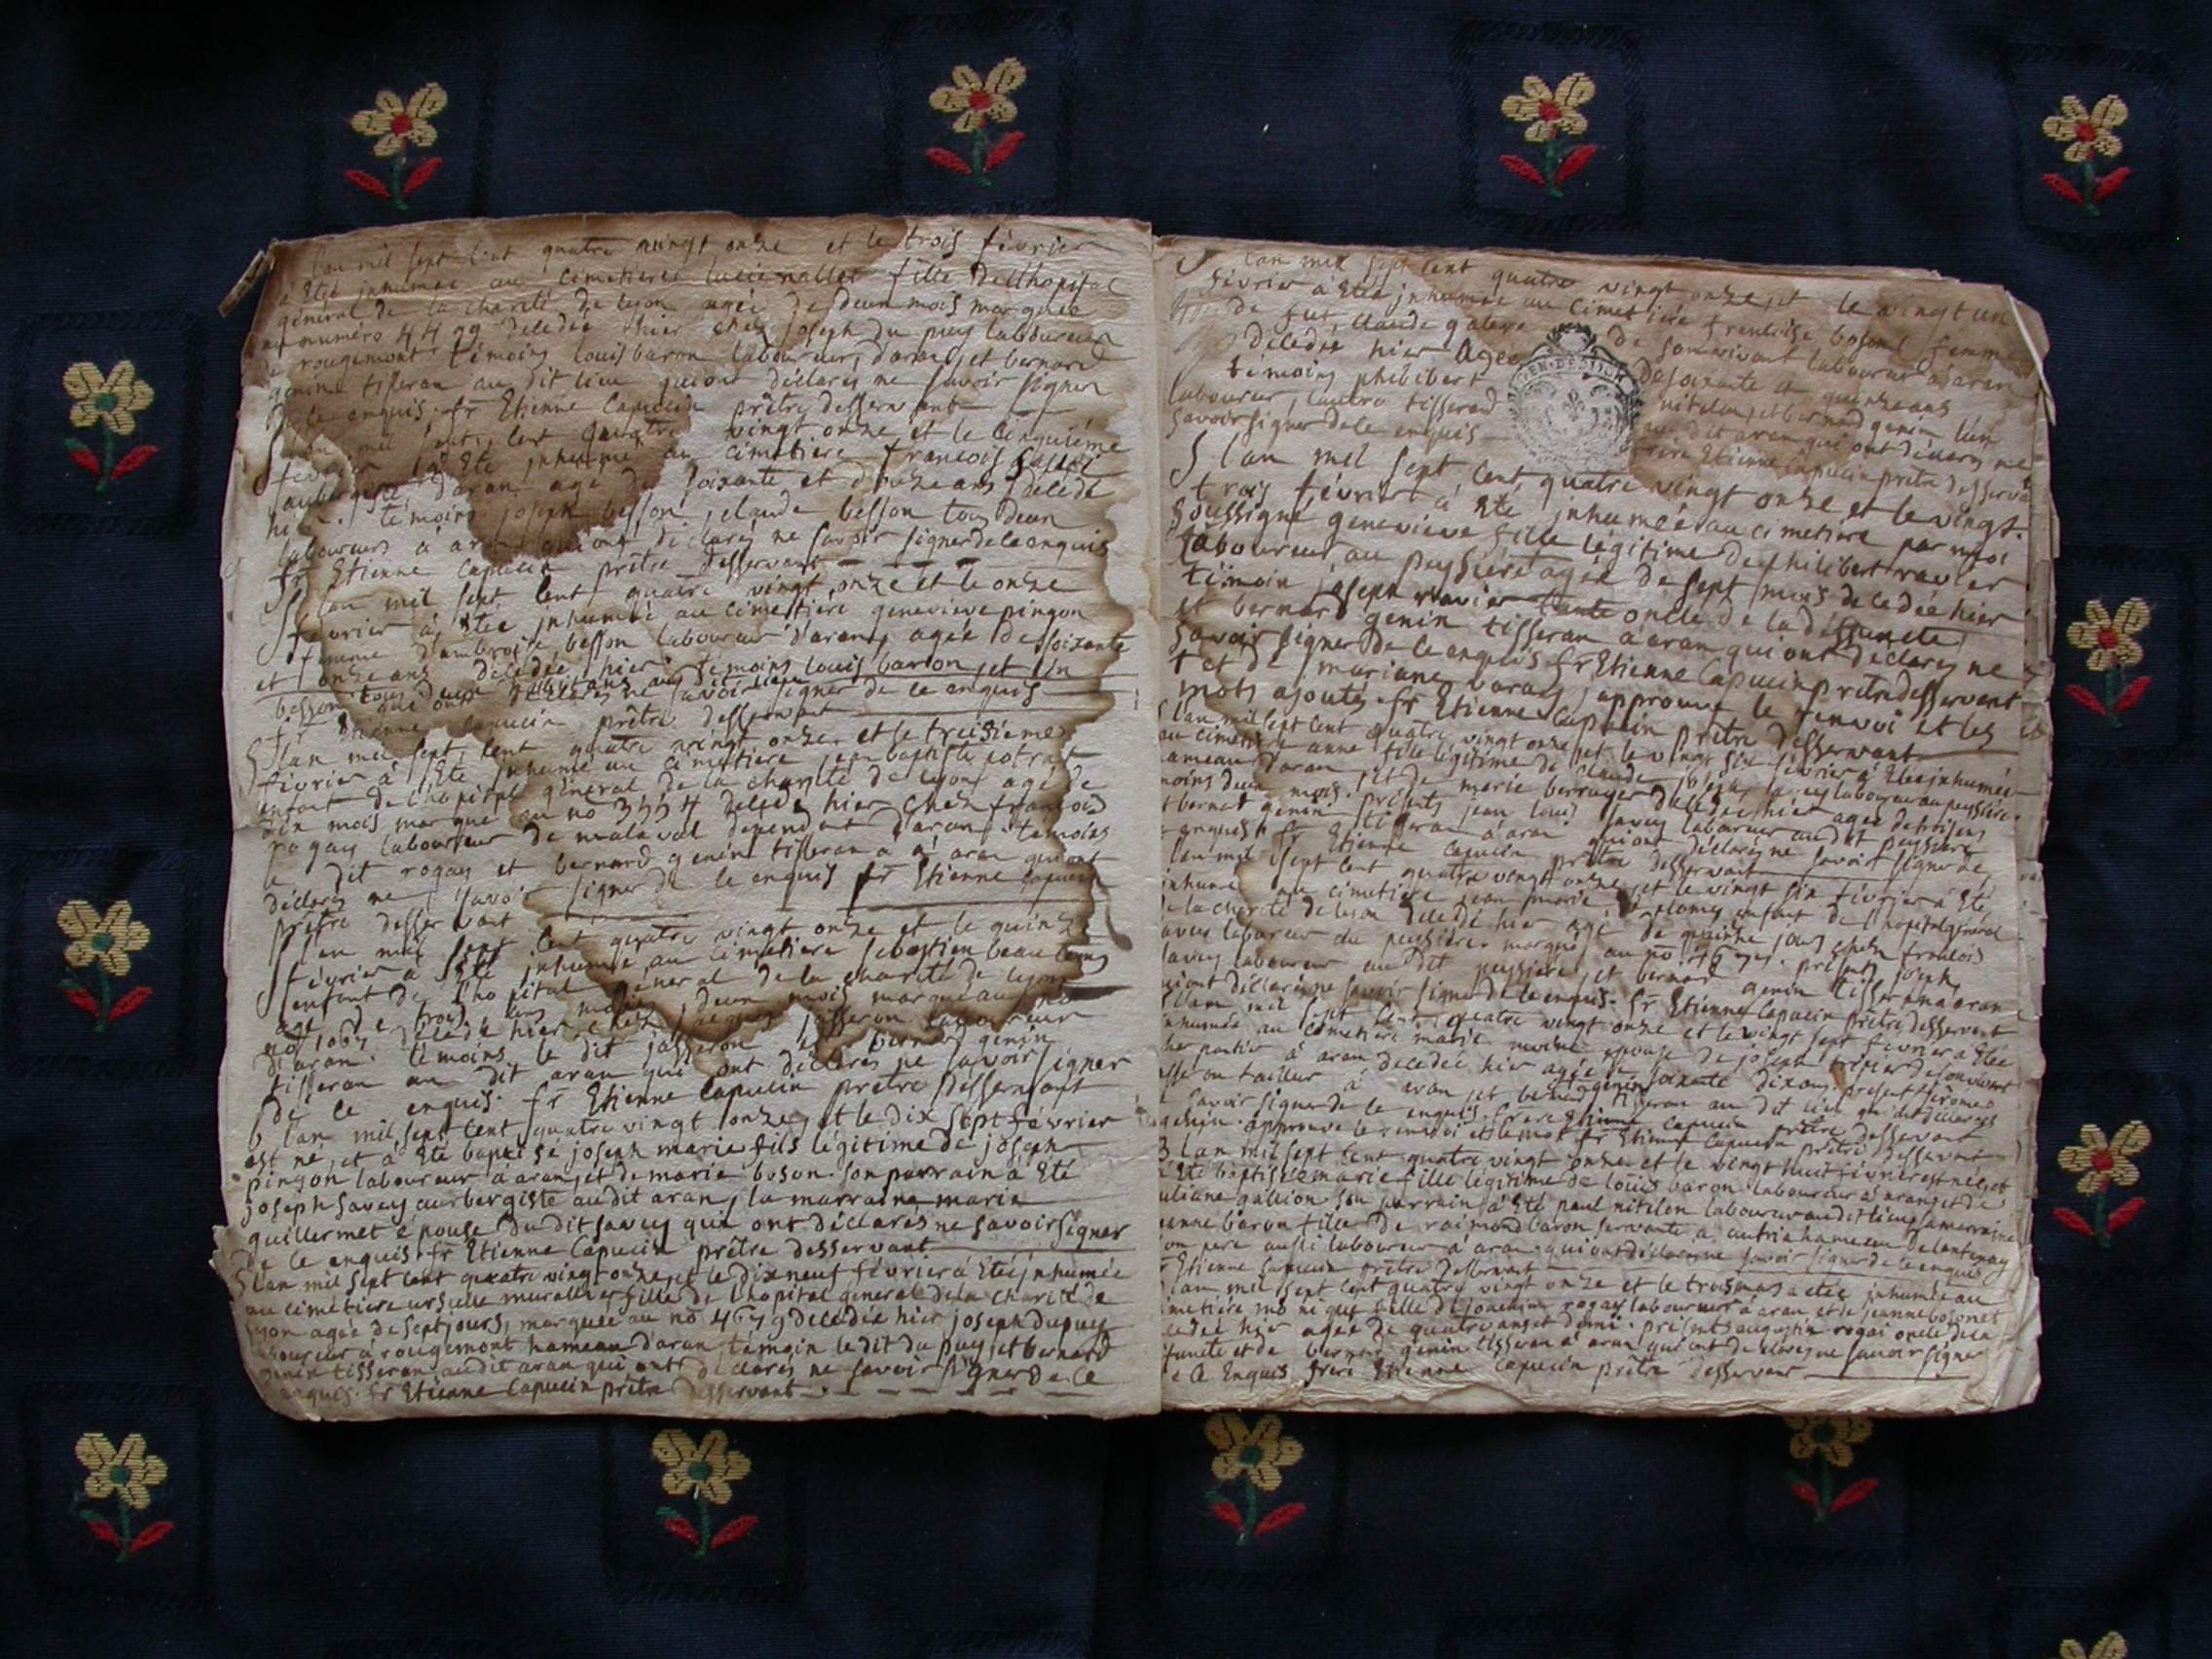 l'an mil sept cent quatre vingt onze et le trois février
à Eté inhumée au cimetiere lucie nallet fille de l'hopital
général de la charité de lyon agée de deux mois marquée
au numéro 4499 décedée hier chez joseph du puy laboureur
à rougemont témoins louis baron laboureur d'aran, et bernard
genin tisseran au dit lieu qui ont déclarés ne savoir signer
de ce enquis. fr Etienne Capucin prêtre desservant
l'an mil sept cent quatre vingt onze et le cinquiéme
février à Eté inhumé au cimetiere francois
aubergiste d'aran agé de soixante et douze ans décédé
hier. témoins joseph besson, claude besson tous deux
laboureurs à aran qui ont déclarés ne savoir signer de ce enquis
fr Etienne Capucin prêtre desservant
l'an mil sept cent quatre vingt onze et le onze
février à Etée inhumée au cimettiere genevieve pingon
femme d'ambroise besson laboureur d'aran, agée de soixante
et onze ans décédée hier témoins louis baron, et
besson tous deux qui ont déclarés ne savoir signer de ce enquis
fr Etienne Capucin prêtre desservant
l'an mil sept cent quatre vingt onze et le treisiéme
février à Eté inhumé au cimetiere jean baptiste
enfant de l'hopital général de la charité de lyon agé de
six mois marqué au no 3354 décédé hier chez francois
rogay laboureur de malaval dépendant d'aran témoins
le dit rogay et bernard genin tisseran à aran qui ont
déclarés ne savoir signer de ce enquis fr Etienne Capucin
prêtre desservant
l'an mil sept cent quatre vingt onze et le quinze
février à Eté inhumé au cimetiere sebastien
enfant de l'hopital général de la charité de lyon
agé de trois ans moins deux mois marqué au
no 1067 décédé hier chez jasseron laboureur
d'aran. témoins le dit jasseron et bernard genin
tisseran au dit aran qui ont déclarés ne savoir signer
de ce enquis. fr Etienne Capucin prêtre desservant
b l'an mil sept cent quatre vingt onze, et le dix sept février
est né, et à Eté baptisé joseph marie fils légitime de joseph
pingon laboureur à aran, et de marie boson. son parrain à Eté
joseph savey auxbergiste audit aran, la marraine marie
guillermet épouse du dit savey qui ont déclarés ne savoir signer
de ce enquis. fr Etienne Capucin prêtre desservant
l'an mil sept cent quatre vingt onze, et le dixneuf février à Eté inhumée
au cimetiere ursulle murallier fille de l'hopital général de la charité de
lyon agée de sept jours, marquée au no 4679 décédée hier joseph dupuy
laboureur à rougemont hameau d'aran témoin le dit du puy, et bernard
genin tisseran audit aran qui ont déclarés ne savoir signer de ce
enquis. fr Etienne Capucin prêtre desservant
l'an mil sept cent quatre vingt onze, et le vingt un
février à Etée inhumée au cimetiere francoise boson femme
de fut, claude galeye de son vivant laboureur à aran
décedée hier agée de soixante et quinze ans
témoins philibert nitelon, et bernard genin l'un
laboureur, l'autre tisserand au dit aran qui ont déclarés ne
savoir signer de ce enquis frère Etienne Capucin prêtre desserva
S l'an mil sept cent quatre vingt onze et le vingt
trois février à Eté inhumée au cimetiere par moi
soussigné genevieve fille légitime de philibert ravier
laboureur au peysiere agée de sept mois décedée hier
témoin joseph ravier oncle de la deffuncte
et bernard genin tisseran à aran qui ont déclarés ne
savoir signer de ce enquis fr Etienne Capucin prêtre desservant
et de mariane varay j'approuve le renvoi et les
mots ajoutés fr Etienne Capucin prêtre desservant
l'an mil sept cent quatre vingt onze et le vingt six février à Etée inhumée
au cimetiere anne fille légitime de claude joseph savey laboureur au peysiere
hameau d'aran, et de marie berruyer décédée hier agée de trois ans
moins deux mois. présents jean louis savey laboureur audit peysiere
et bernard genin tisseran à aran qui ont déclarés ne savoir signer de
ce enquis fr Etienne Capucin prêtre desservant
l'an mil sept cent quatre vingt onze, et le vingt six février à Eté
inhumé au cimetiere jean marie enfant de l'hopital général
de la charité de lyon décédé hier agé de quinze jours chez francois
savey laboureur du peysiere marqué au no présents joseph
savey laboureur au dit peysiere, et bernard genin tisseran à aran
qui ont déclarés ne savoir signer de ce enquis. fr Etienne Capucin prêtre desservant
l'an mil sept cent quatre vingt onze et le vingt sept février à Etée
inhumée au cimetiere marie épouse de joseph
à aran décedée hier agée de soixante dix ans. présent jerome
tailleur à aran, et bernard genin tisseran au dit lieu qui ont déclarés
ne savoir signer de ce enquis. frere Etienne Capucin prêtre desservant
genin. approuve le renvoi et le mot fr Etienne Capucin prêtre desservant
B l'an mil sept cent quatre vingt onze et le vingt huit février est née, et
à Eté baptisée marie fille légitime de louis baron laboureur à aran, et de
juliane galvion. son parrain à Eté paul nitelon laboureur au dit lieu, sa marraine
jeanne baron fille de raimond baron servante à autrix hameau de lantenay
son pere aussi laboureur à aran. qui ont déclarés ne savoir signer de ce enquis
fr Etienne Capucin prêtre desservant
l'an mil sept cent quatre vingt onze et le trois mars à etée inhumée au
cimetiere monique fille de joachim rogay laboureur à aran et de jeanne bosonet
décedée hier agée de quatre ans et demi. présents augustin rogai oncle de la
defuncte et de bernard genin tisseran à aran qui ont déclarés ne savoir signer
de ce Enquis frere Etienne Capucin prêtre desservant